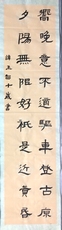 嚮晚意不適驅車登古原
夕陽無限好祇是近黃昏
十歲書